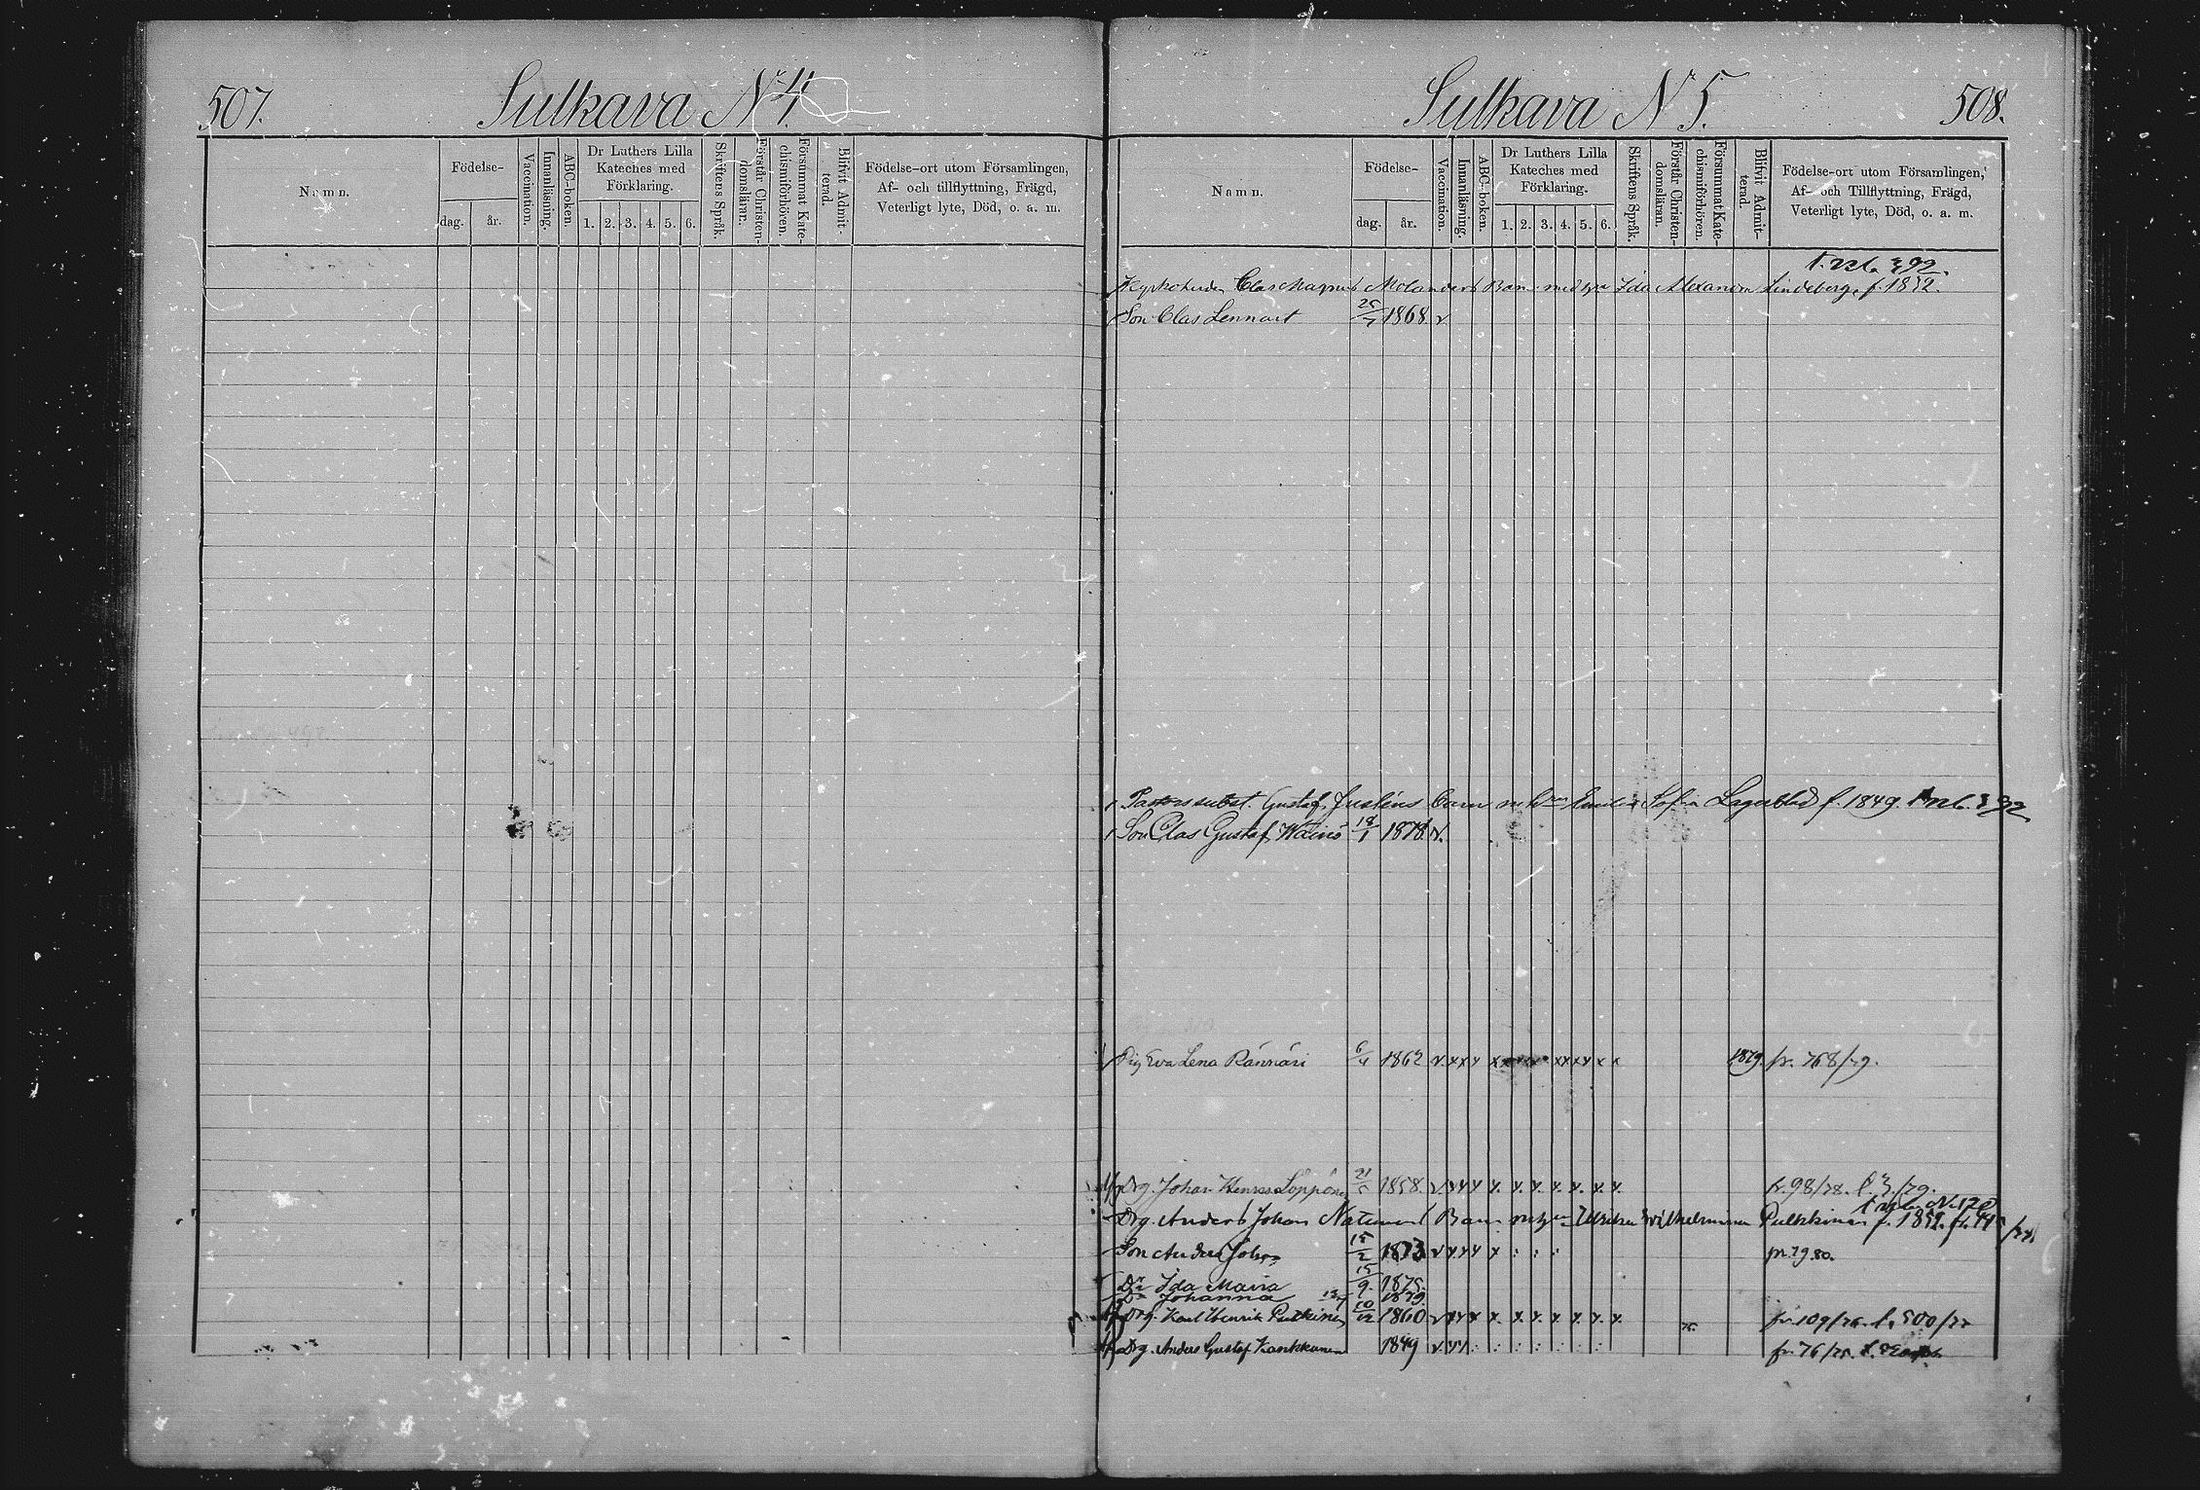 507.
Sulkava No 4.
Namn.
Födelse-
dag.
år.
Vaccination.
Innanläsning.
ABC-boken.
Dr Luthers Lilla
Kateches med
Förklaring.
1. 2. 3. 4. 5. 6.
Skriftens Språk.
Förstår Christen-
domsläran.
Försummat Kate-
chismiförhören.
Blifvit Admit-
terad.
Födelse-ort utom Församlingen,
Af- och tillflyttning, Frägd,
Veterligt lyte, Död, o. a. m.
Sulkava N 5.
508.
Namn.
Födelse-
dag.
år.
Vaccination.
Innanläsning.
ABC-boken.
Dr Luthers Lilla
Kateches med
Förklaring.
1. 2. 3. 4. 5. 6.
Skriftens Språk.
Förstår Christen-
domsläran.
Försummat Kate-
chismiförhören.
Blifvit Admit-
terad.
Födelse-ort utom Församlingen,
Af- och Tillflyttning, Frägd,
Veterligt lyte, Död, o. a. m.
Kyrkoherden Clas Magnus Molanders Barn med Ida Alexandra Lindeberg, f. 1852.
Son Clas Lennart 1868 v
Pastors subst. Gustaf Juslins barn m Emilia Sofia Lagerblad f. 1849.
Son Clas Gustaf Wäinö 18/1 1878 v.
Pig Eva Lena Rännäri 6/4 1862 v x x x x x x x x x 1879. fr. 768/79.
Drg. Johan Loppönen 21/5 1858. v x x x x x. x. x. x. x. x. fr. 98/78.
Drg. Anders Johan Barn Wilhelmina Pulkkinen f. 1852.
Son Anders Johan 15/2 1873 v x x x x
Dr Ida Maria 15/9 1875.
Dr Johanna 1879.
Drg. Karl Henrik Pulkkinen 10/12 1860 v x x x x. x. x. x. x. x. x. fr. 109/76. f. 500/77
Drg. Anders Gustaf Kankkunen 1849 v. x x fr. 76/75.